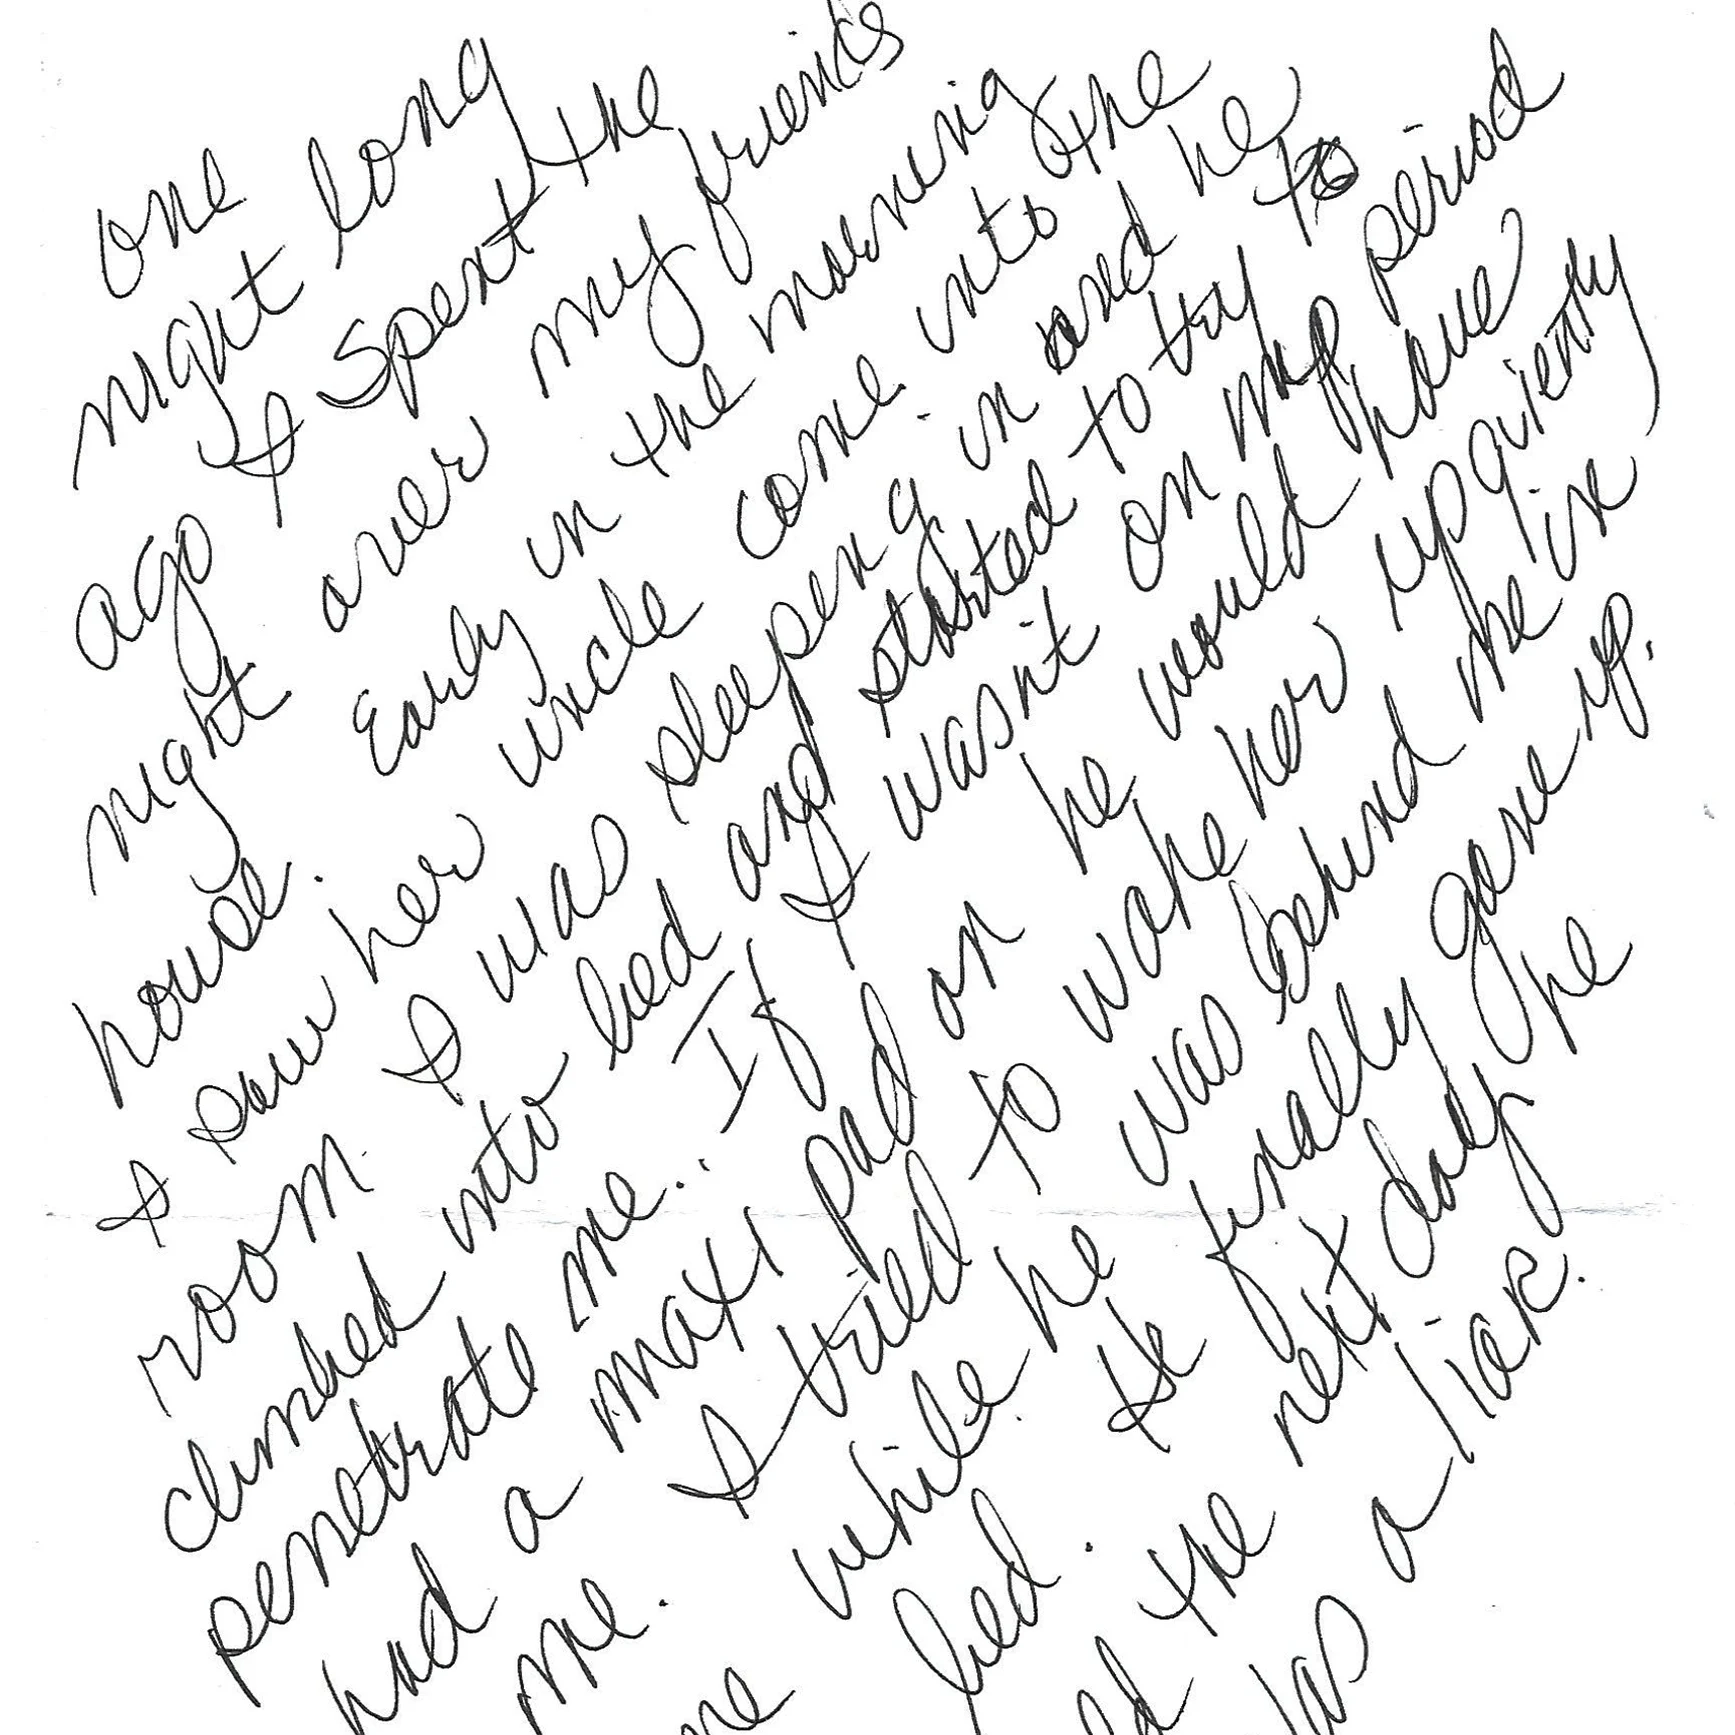 one long
night
ago I spent the
night over my friends
house. Early in the morning
I saw her uncle come into the
room. I was sleeping in and he
climbed into bed and started to try to
penetrate me. If I wasn't on my period
had a maxi pad on he would have
me. I tried to wake her up quietly
while he was behind me in
bed. He finally gave up.
the next day he
a liar.